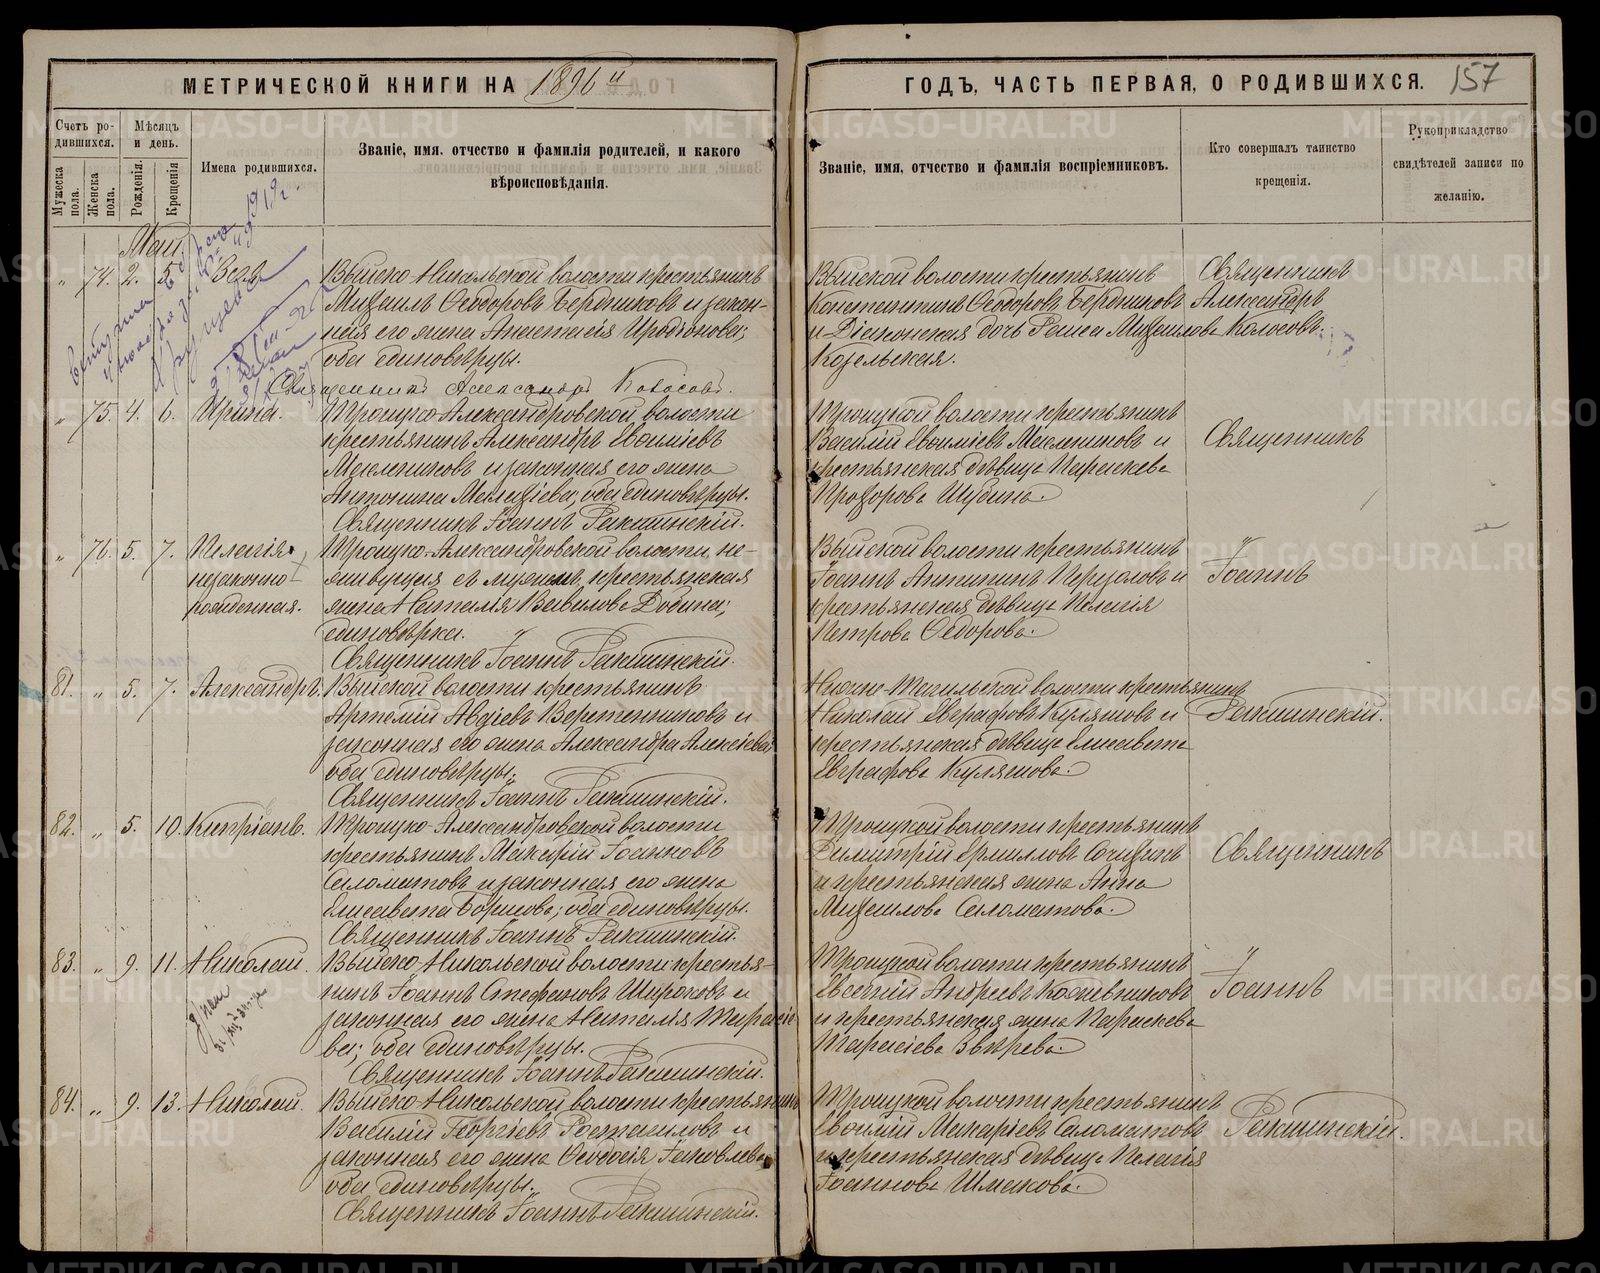 МЕТРИЧЕСКОЙ КНИГИ НА 1896 й
Счетъ ро-
дившихся.
Мужеска пола.
Женска пола.
Мѣсяцъ и день.
Рожденія.
Крещенія
Имена родившихся.
Званіе, имя, отчество и фамилія родителей, и какого
вѣроисповѣданія.
Май
„ 74. 2. 5.
1919г.
Выйско-Никольской волости крестьянинъ
Михаилъ Ѳеодоровъ Беренниковъ и закон-
ная его жена Анастасія Иродіонова;
оба единовѣрцы.
Священникъ Александръ Колосовъ.
„ 75. 4. 6. Ирина.
Троицко-Александровской волости
крестьянинъ Александръ Евѳиміевъ
Масленниковъ и законная его жена
Антонина Малахіева; оба единовѣрцы.
Священникъ Іоаннъ Ракшинскій.
„ 76. 5. 7. Пелагія
незаконно
рожденная.
Троицко-Александровской волости, не-
живущая съ мужемъ, крестьянская
жена Наталія Вавилова Добина;
единовѣрка.
Священникъ Іоаннъ Ракшинскій.
81. „ 5. 7. Александръ.
Выйской волости крестьянинъ
Артемій Авдіевъ Веретенниковъ и
законная его жена Александра Алексіева;
оба единовѣрцы.
Священникъ Іоаннъ Ракшинскій.
82. „ 5. 10. Кипріанъ.
Троицко-Александровской волости
крестьянинъ Максимъ Іоанновъ
Саломатовъ и законная его жена
Елисавета Борисова; оба единовѣрцы.
Священникъ Іоаннъ Ракшинскій.
83. „ 9. 11. Николай.
Выйско-Никольской волости крестья-
нинъ Іоаннъ Стефановъ Широковъ и
законная его жена Наталія Тарасіе-
ва; оба единовѣрцы.
Священникъ Іоаннъ Ракшинскій.
84. „ 9. 13. Николай.
Выйско-Никольской волости крестьянинъ
Василій Георгіевъ и
законная его жена Ѳеодосія Іаковлева
оба единовѣрцы.
Священникъ Іоаннъ Ракшинскій.
ГОДЪ, ЧАСТЬ ПЕРВАЯ, О РОДИВШИХСЯ. 157
Званіе, имя, отчество и фамилія воспріемниковъ.
Кто совершалъ таинство
крещенія.
Рукоприкладство
свидѣтелей записи по
желанію.
Выйской волости крестьянинъ
Константинъ Ѳеодоровъ Беренниковъ
и Діаконская дочь Раиса Михаилова
Козельская.
Священникъ
Александръ
Колосовъ.
Троицкой волости крестьянинъ
Василій Евѳиміевъ Масленниковъ и
крестьянская дѣвица Параскева
Прохорова Шубина.
Священникъ
Выйской волости крестьянинъ
Іоаннъ Антипинъ Перхоловъ и
крестьянская дѣвица Пелагія
Петрова Ѳедорова.
Іоаннъ
Нижне-Тагильской волости крестьянинъ
Николай Евграфовъ Куляшовъ и
крестьянская дѣвица Елисавета
Евграфова Куляшова.
Ракшинскій.
Троицкой волости крестьянинъ
Димитрій Ермиловъ
и крестьянская жена Анна
Михаилова Саломатова.
Священникъ
Троицкой волости крестьянинъ
Евсевій Андреевъ Кожевниковъ
и крестьянская жена Параскева
Тарасіева Звѣрева.
Іоаннъ
Троицкой волости крестьянинъ
Евѳимій Макаріевъ Саломатовъ
и крестьянская дѣвица Пелагія
Іоаннова Шмакова.
Ракшинскій.
METRIKI.GASO-URAL.RU